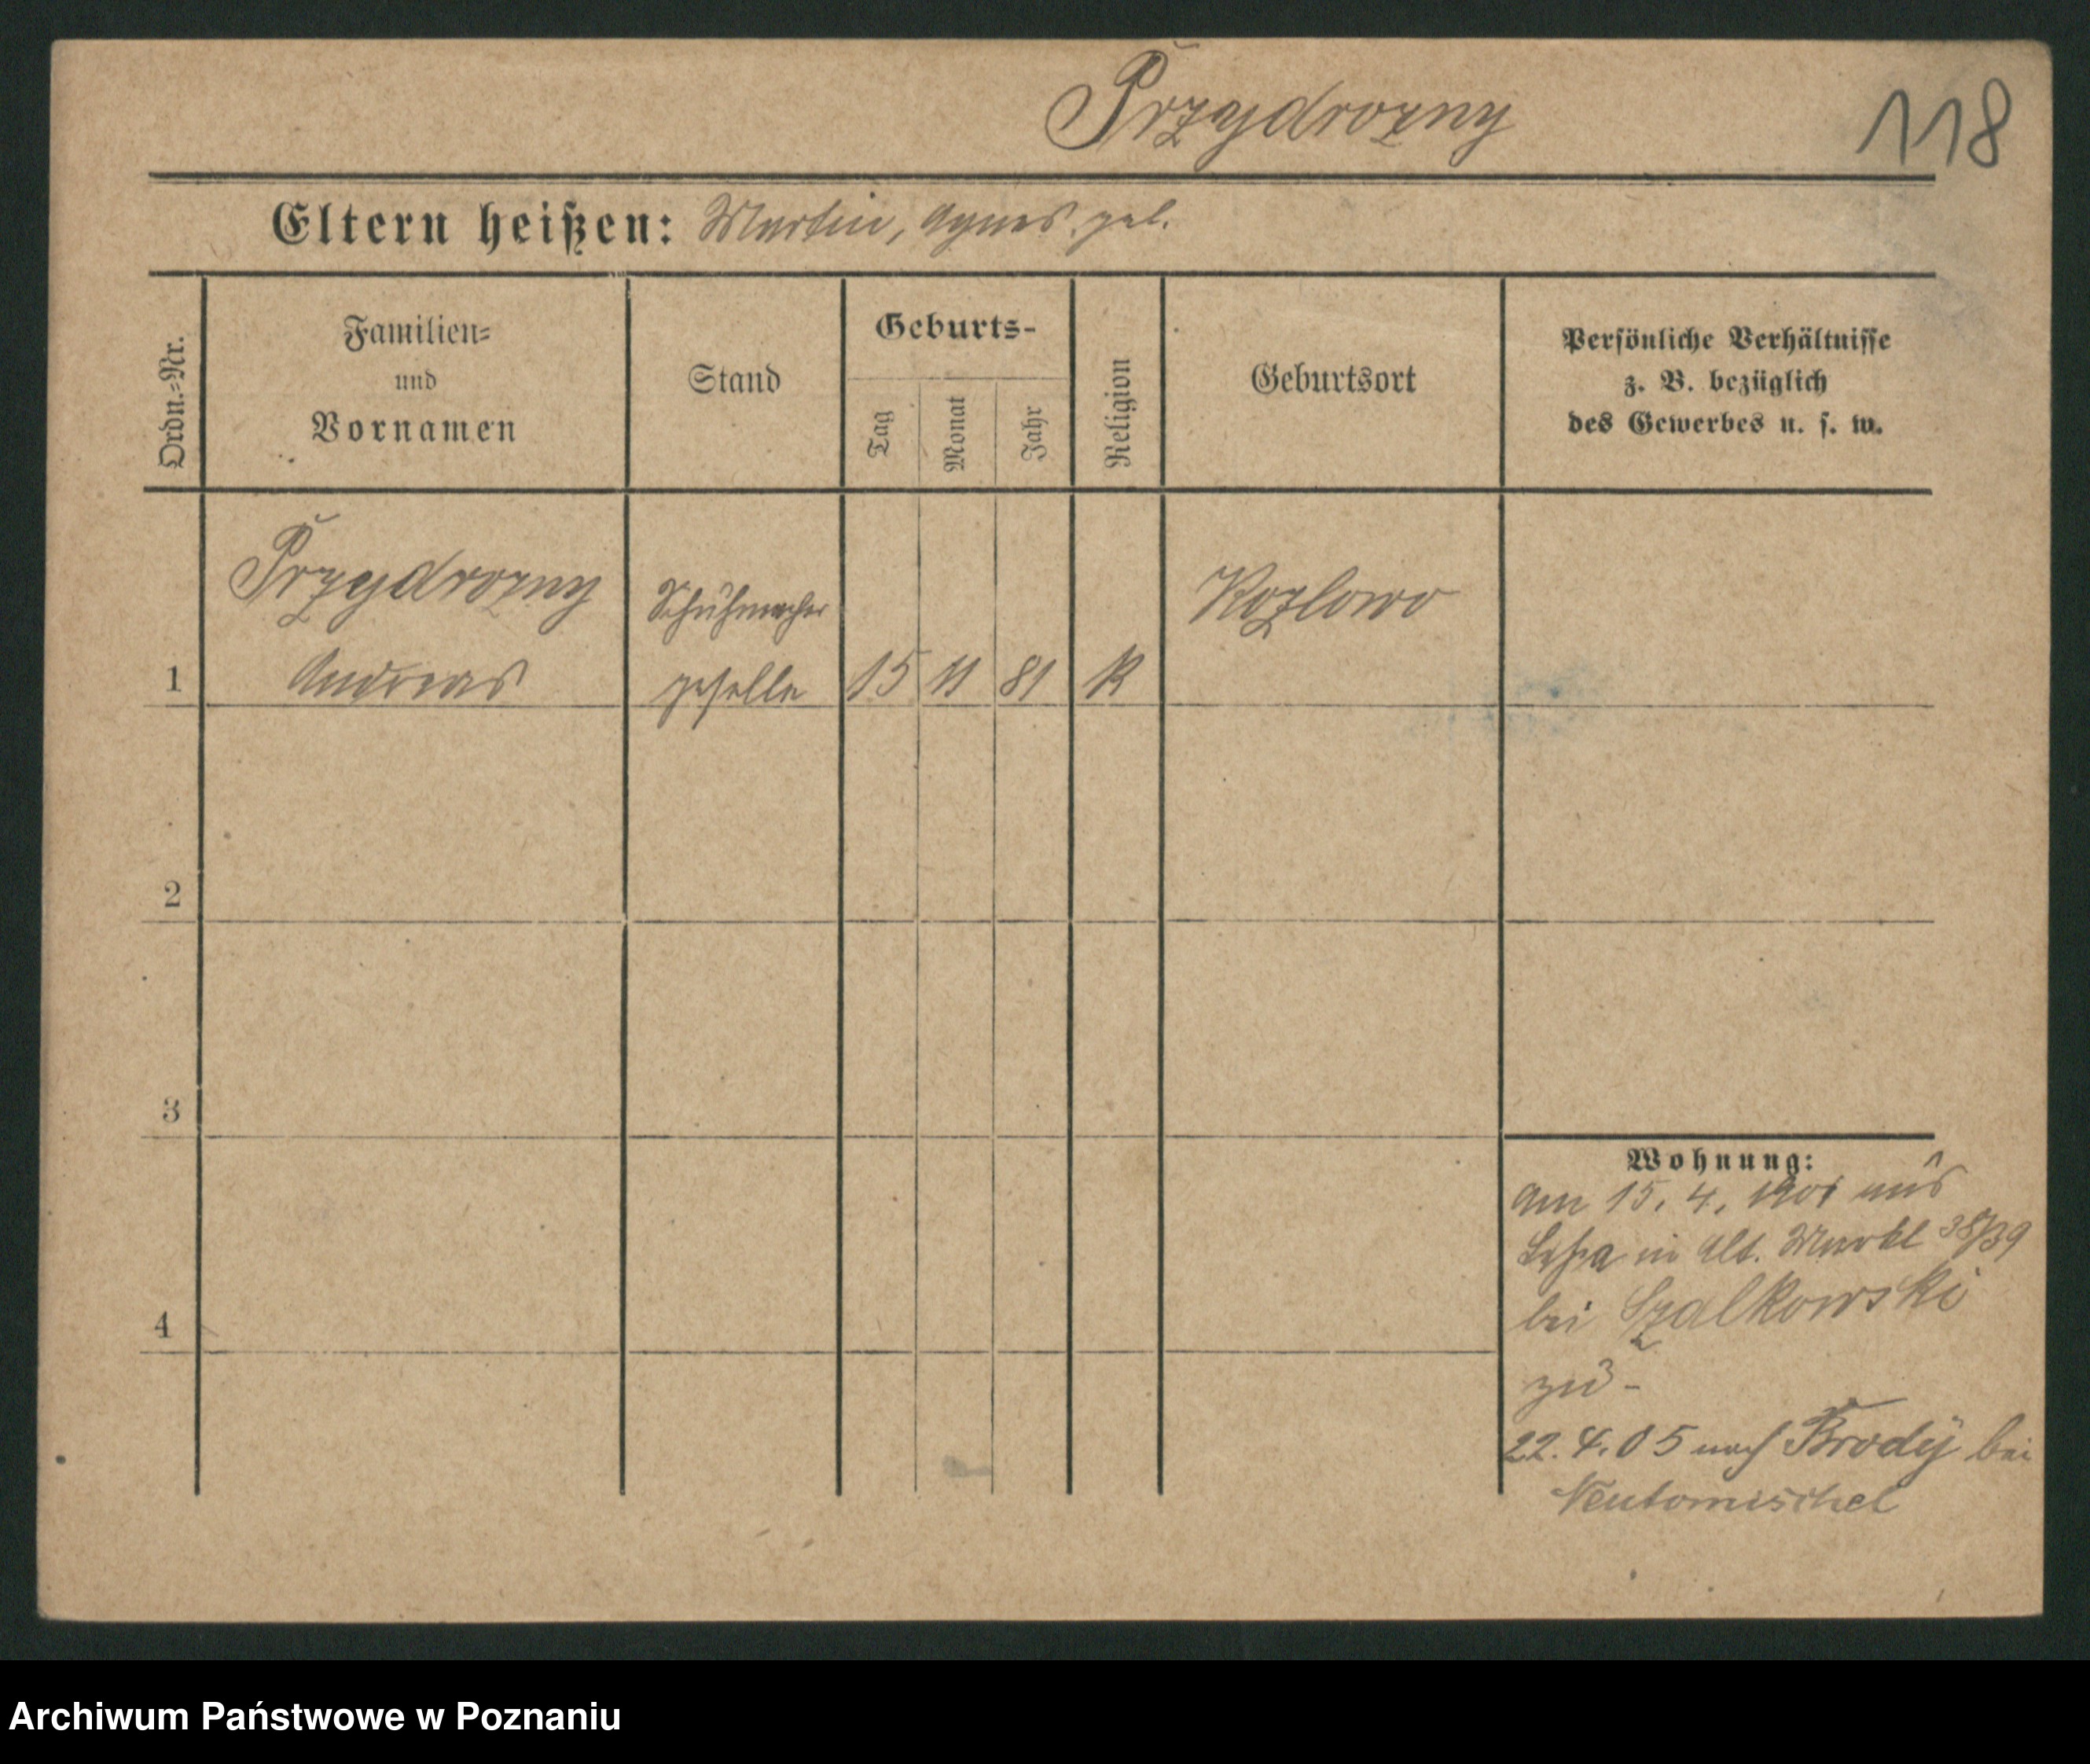 Przydrozny
118
Eltern heißen: Martin, Agnes. geb.
Ordn.=Nr.
Familien=
und
Vornamen
Stand
Geburts-
Tag
Monat
Jahr
Religion
Geburtsort
Persönliche Verhältnisse
z. B. bezüglich
des Gewerbes u. s. w.
Przydrozny
Andreas
Schuhmacher
geselle
1
15
11
81
K
Kozlowo
2
3
4
Wohnung:
Am 15. 4. 1901 aus
in Alt. Markt 38/39
bei Szalkowski
zu-
22. 4. 05 nach Brody bei
Neutomischel
Archiwum Państwowe w Poznaniu